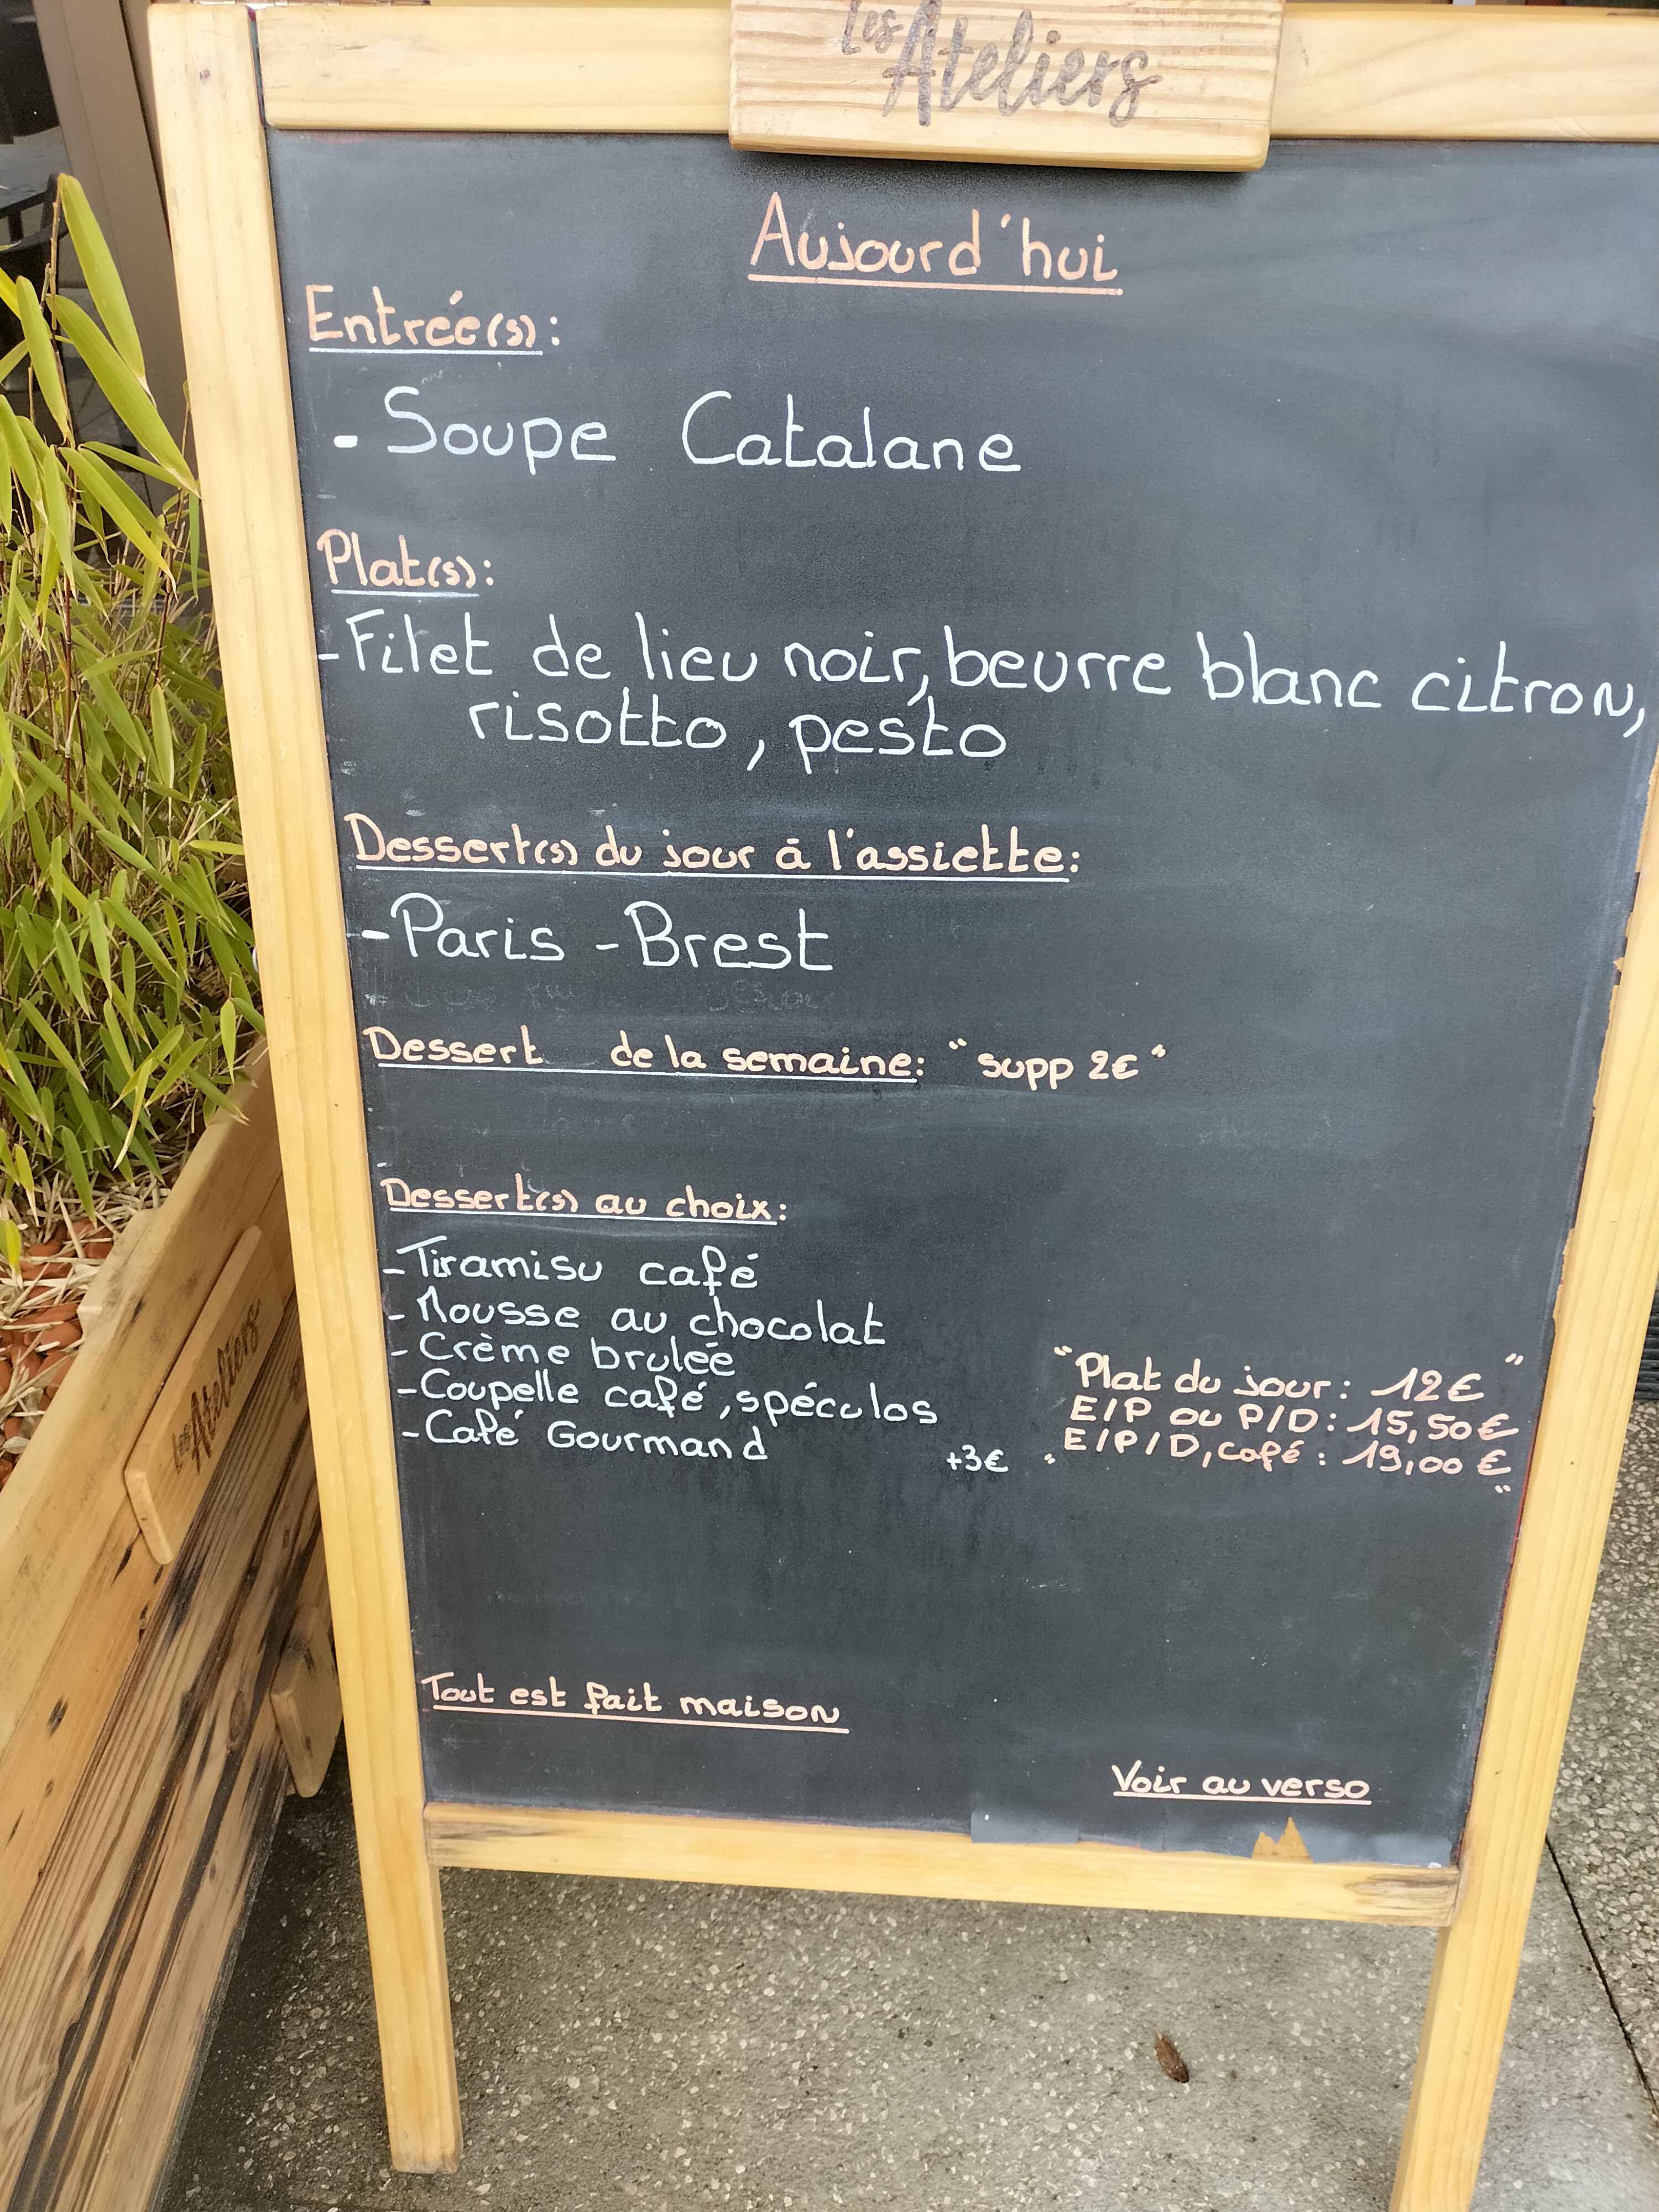 Les Ateliers
Aujourd'hui
Entrée(s):
- Soupe Catalane
Plat(s):
-Filet de lieu noir, beurre blanc citron,
risotto, pesto
Dessert(s) du jour à l'assiette:
-Paris -Brest
Dessert de la semaine: "supp 2€"
Dessert(s) au choix:
-Tiramisu café
-Mousse au chocolat
-Crème brulée
-Coupelle café, spéculos
-Café Gourmand +3€
"Plat du jour: 12€"
E/P ou P/D: 15,50€
"E/P/D, café: 19,00€"
Tout est fait maison
Voir au verso
Les Ateliers